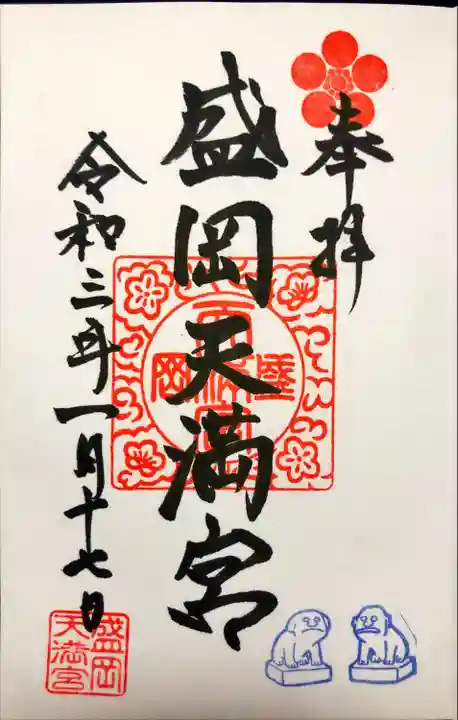 奉拝
盛岡天満宮
令和三年一月十七日
盛岡
天満宮
盛岡
天満宮